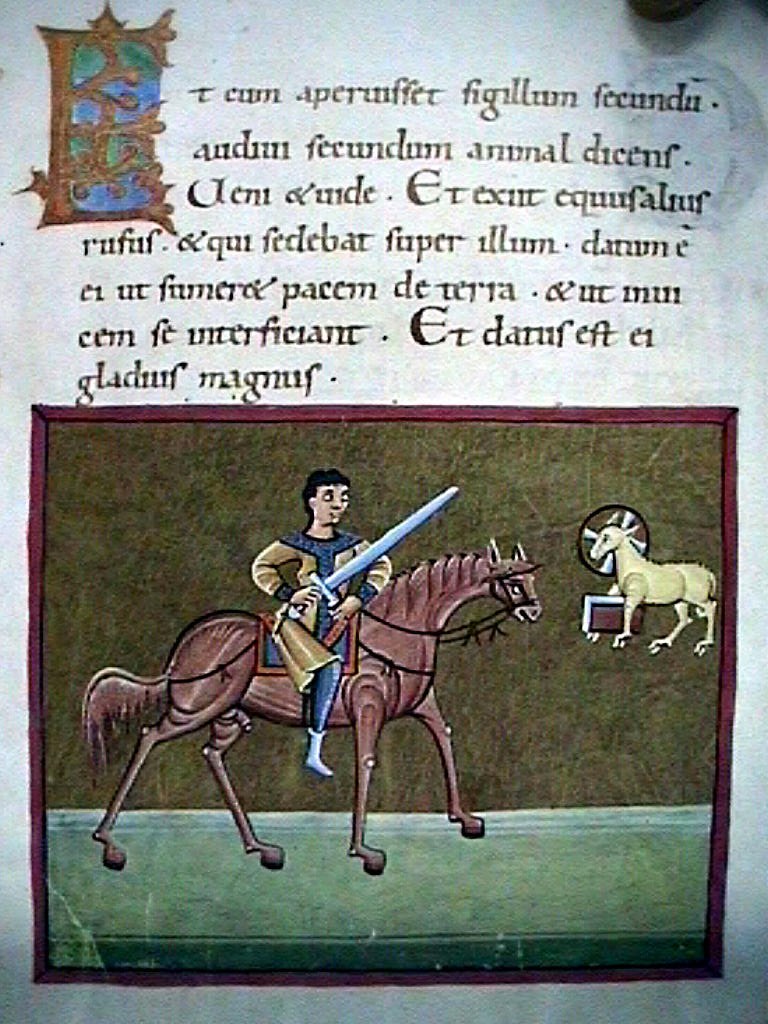 Et cum aperuisset sigillum secundū.
audiui secundum animal dicens.
Ueni &uide. Et exiit equus alius
rufus. &qui sedebat super illum. datum ē
ei ut sumer& pacem de terra. &ut inui
cem se interficiant. Et datus est ei
gladius magnus.